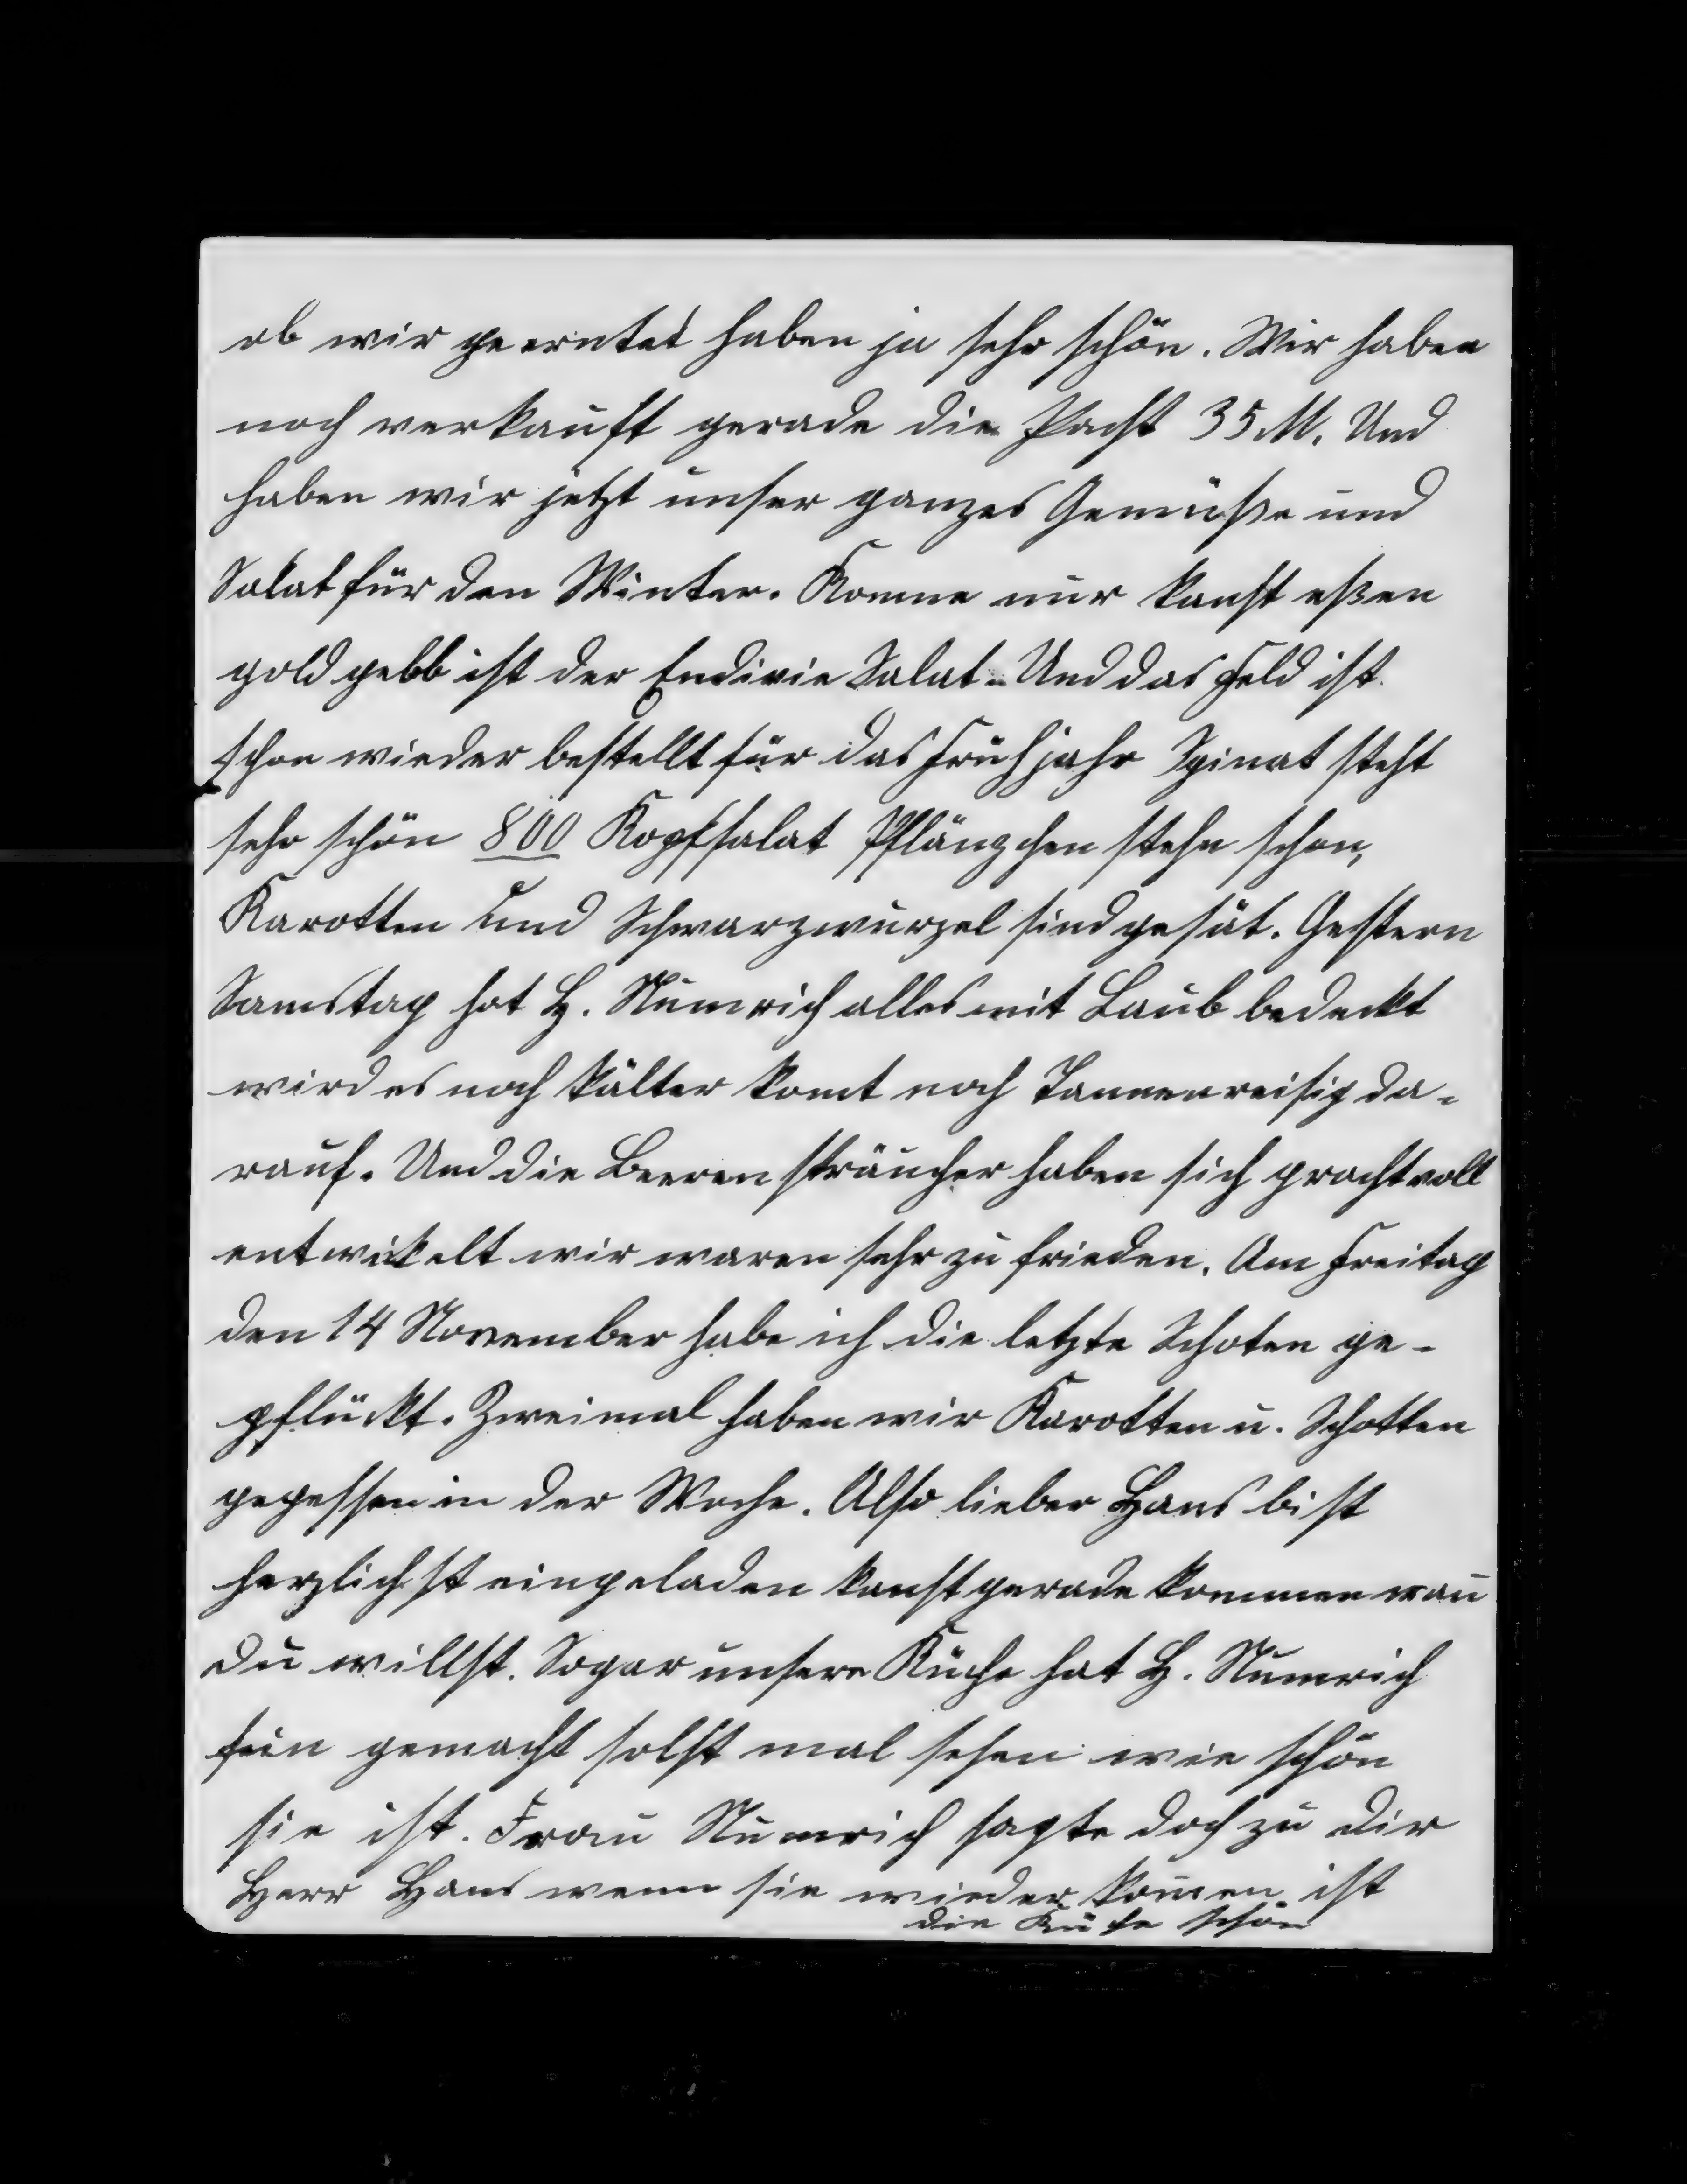 ob wir geerntet haben ja sehr schön. Wir haben
noch verkauft gerade die Pacht 35 M. Und
haben wir jetzt unser ganzes Gemüße und
Salat für den Winter. Komme nur kanst eßen
gold gelb ist der Endivie Salat. Und das Feld ist
schon wieder bestellt für das Frühjahr Spinat steht
sehr schön 800 Kopfsalat Pflänzchen stehn schon,
Karotten und Schwarzwurzel sind gesät. Gestern
Samstag hat H. Numrich alles mit Laub bedeckt
wird es noch kälter komt noch Tannenreisig da-
rauf. Und die Beerensträucher haben sich prachtvoll
entwikelt wir waren sehr zu frieden. Am Freitag
den 14 November habe ich die letzte Schoten ge-
pflückt. Zweimal haben wir Karotten u. Schotten
gegessen in der Woche. Also lieber Hans bist
herzlichst eingeladen kanst gerade kommen wan̄
du willst. Sogar unsere Küche hat H. Numrich
fein gemacht solst mal sehen wie schön
sie ist. Frau Numrich sagte doch zu dir
Herr Hans wenn sie wieder kom̄en ist
die Küche schön